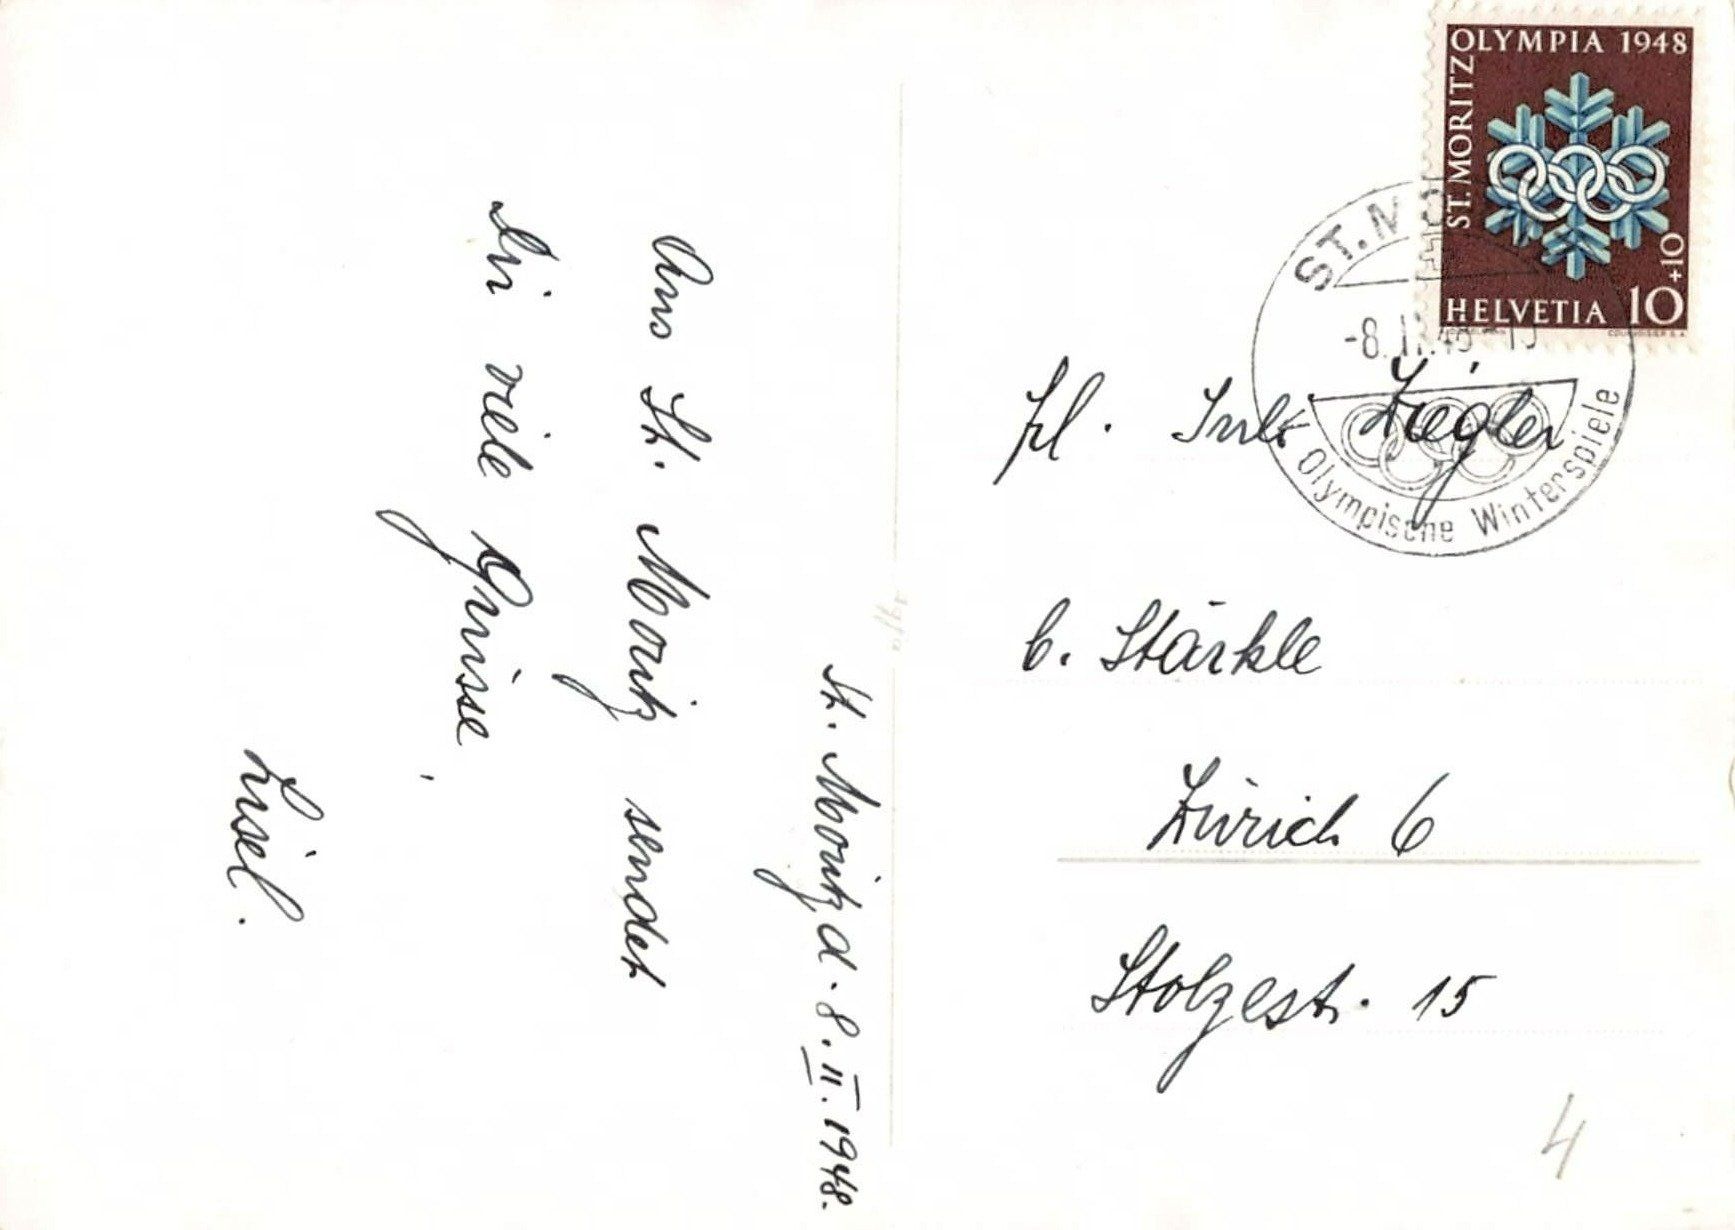 St. Moritz d. 8. II. 1948.
Aus St. Moritz sendet
Dir viele Grüsse,
Liesel.
OLYMPIA 1948
ST. MORITZ
10+10
HELVETIA 10
ST. MORITZ
-8.II.48-
V. Olympische Winterspiele
Frl. Ziegler
b. Stärkle
Zürich 6
Stolzestr. 15
4